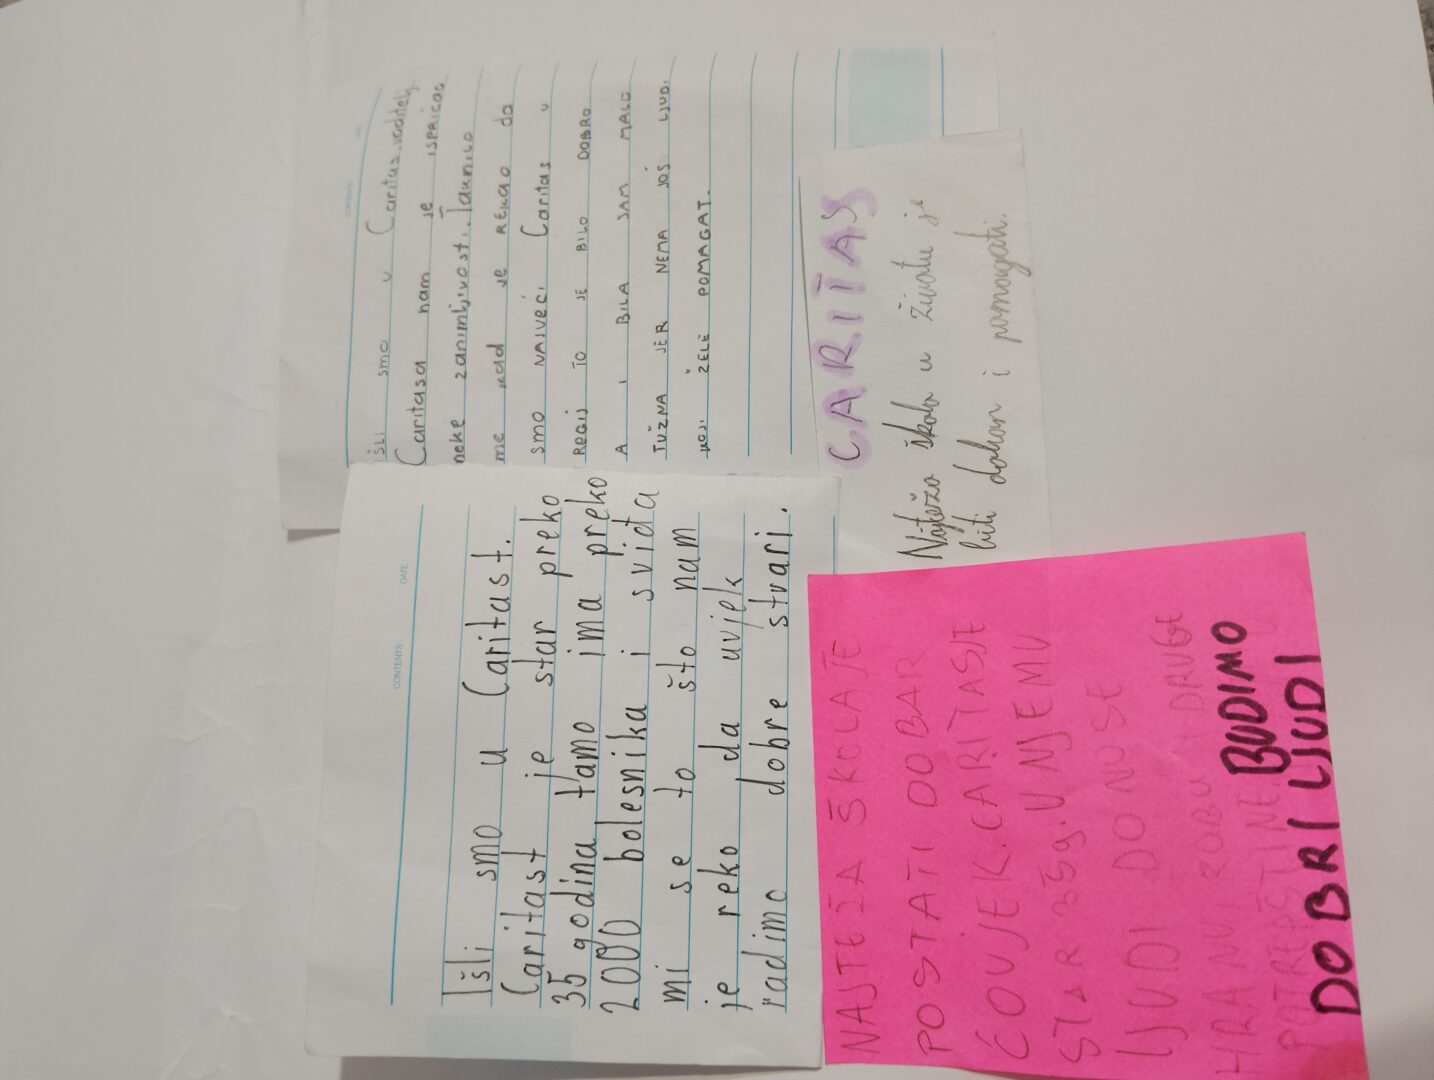 CONTENTS
DATE
Išli smo u Caritast.
Caritast je star preko
35 godina tamo ima preko
2000 bolesnika i svieta
mi se to što nam
je reko da uvjek
radimo dobre stvari.
CONTENTS
išli smo u Caritas.
Caritasa nam je ISPRIČAO
neke zanimljivosti.
me kad je REKAO da
smo NAJVEĆI Caritas u
REGIJ TO JE BILO DOBRO
A i BILA SAM MALO
TUŽNA JER NEMA JOŠ LJUDI
KOJI ŽELE POMAGAT.
CARITAS
Najteža škola u životu je
biti dobar i pomagati.
NAJTEŽA ŠKOLA JE
POSTATI DOBAR
ČOVJEK. CARITAS JE
STAR 35g. U NJEMU
LJUDI DONOSE
HRANU, ROBU I DRUGE
POTREPŠTINE
BUDIMO
DOBRI LJUDI